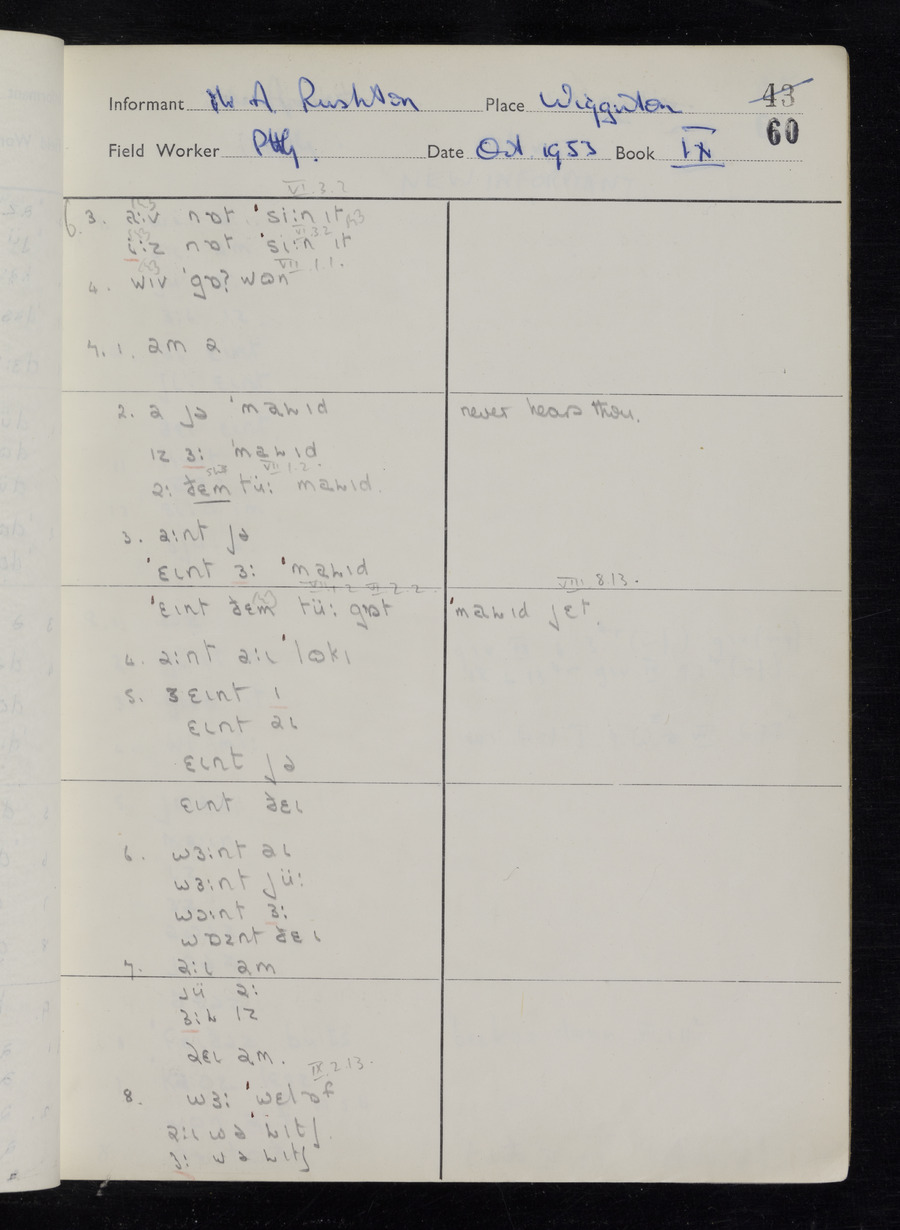 Informant Mr A Rushton Place Wigginton 43
60
Field Worker Date Oct 1953 Book IX
VI.3.2
3. nɒt ˈsiːn ɪt
VI 3.2
nɒt ˈsiːn ɪt
VII.1.1.
4. wɪv ˈgɒʔ wɒn
7. 1. am a
2. a jə ˈmaɹɪd never hears thou.
ɪz ɜː ˈmaɹɪd
VII 1.2.
aː ðɛm tüː maɹɪd.
3. aːnt jə
ˈɛɪnt ɜː ˈmaɹɪd
VIII 8.13.
ˈɛɪnt ðɛm tüː gɒt ˈmaɹɪd jɛt.
4. aːnt aːɪ ˈlɷkɪ
5. ɛɪnt ɪ
ɛɪnt aɪ
ɛɪnt jə
ɛɪnt ðɛɪ
6. wɜːnt aɪ
wɜːnt jüː
wɔːnt ɜː
wɒznt ðɛɪ
7. aːɪ am
jü aː
ɜːɹ ɪz
ðɛɪ am.
IX.2.13.
8. wɜː ˈwɛl ɒf
aːɪ wə ˈɹɪtʃ
ɜː wə ɹɪtʃ